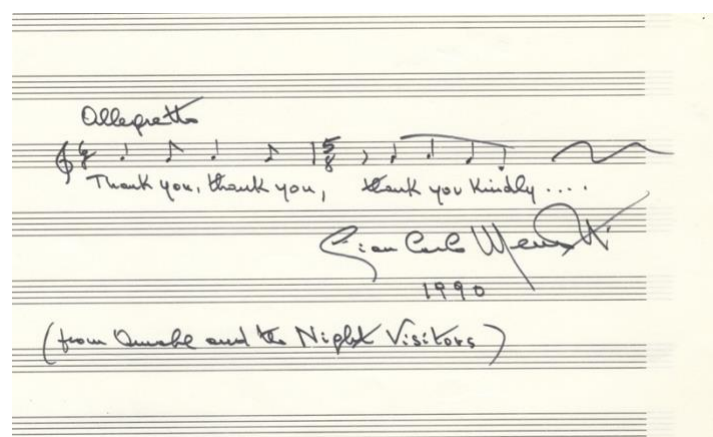 Allegretto
5
8
Thank you, thank you, thank you kindly ....
Gian Carlo Menotti
1990
(from Amahl and the Night Visitors)